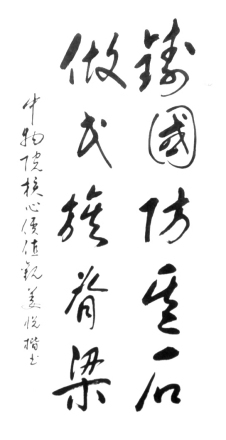 铸國防基石
做民族脊梁
中物院核心價值觀 姜悦楷书